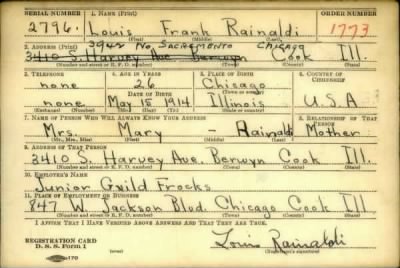 SERIAL NUMBER 1. NAME (Print) ORDER NUMBER
2796. Louis Frank Rainaldi 1773
(First) (Middle) (Last)
3942 No. Sacramento Chicago
2. ADDRESS (Print)
3410 S. Harvey Ave. Berwyn Cook Ill.
(Number and street or R. F. D. number) (Town) (County) (State)
3. TELEPHONE 4. AGE IN YEARS 5. PLACE OF BIRTH 6. COUNTRY OF CITIZENSHIP
none 26 Chicago
DATE OF BIRTH (Town or county)
none May 15 1914 Illinois U.S.A
(Mo.) (Day) (Yr.) (State or country)
7. NAME OF PERSON WHO WILL ALWAYS KNOW YOUR ADDRESS 8. RELATIONSHIP OF THAT PERSON
Mrs. Mary - Rainaldi Mother
(Mr., Mrs., Miss) (First) (Middle) (Last)
9. ADDRESS OF THAT PERSON
3410 S. Harvey Ave. Berwyn Cook Ill.
(Number and street or R. F. D. number) (Town) (County) (State)
10. EMPLOYER'S NAME
Junior Guild Frocks
11. PLACE OF EMPLOYMENT OR BUSINESS
847 W. Jackson Blvd. Chicago Cook Ill
(Number and street or R. F. D. number) (Town) (County) (State)
I AFFIRM THAT I HAVE VERIFIED ABOVE ANSWERS AND THAT THEY ARE TRUE.
REGISTRATION CARD
D. S. S. Form 1 Louis Rainaldi